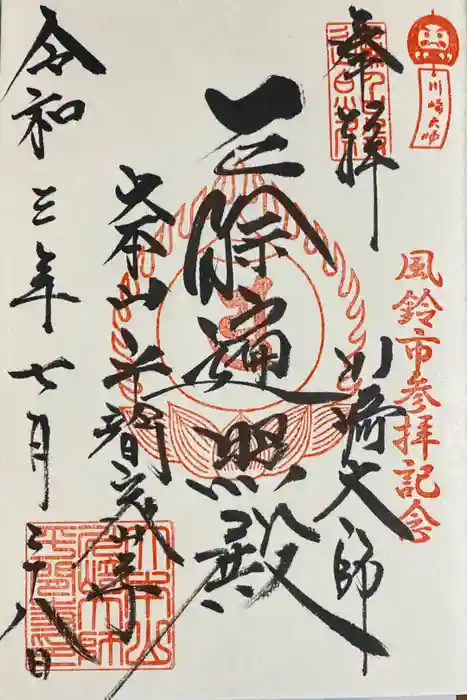 川崎大師
奉拝
風鈴市参拝記念
川崎大師
厄除遍照殿
大本山平間寺
令和三年七月二十八日